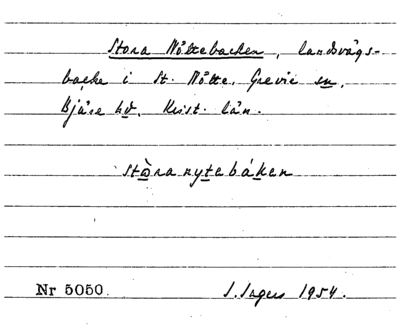 Stora Nöttebacken, landsvägs-
backe i St. Nötte, Grevie sn,
Bjäre hd, Krist. län.
stòra nytebáken
Nr 5050. I. Ingers 1954.